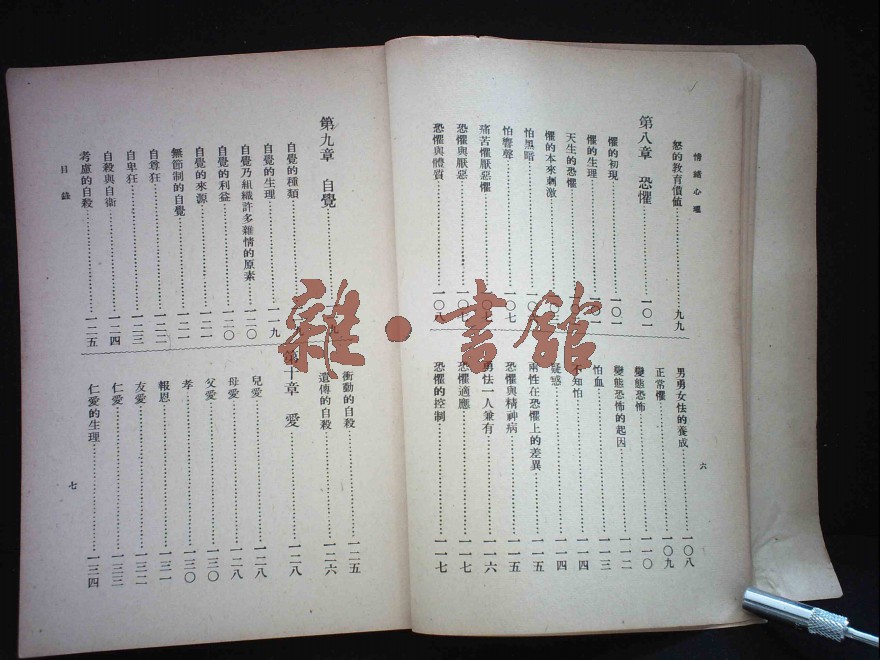 情緒心理
怒的教育價値⋯⋯九九
第八章 恐懼⋯⋯一〇一
懼的初現⋯⋯一〇一
懼的生理
天生的恐懼
懼的本來刺激
怕黑暗
怕響聲⋯⋯一〇七
痛苦懼厭惡懼⋯⋯一〇七
恐懼與厭惡⋯⋯一〇七
恐懼與體質⋯⋯一〇八
男勇女怯的養成⋯⋯一〇八
正常懼⋯⋯一〇九
變態恐怖⋯⋯一一〇
變態恐怖的起因⋯⋯一一二
怕血⋯⋯一一三
不知怕⋯⋯一一四
疑惑⋯⋯一一四
兩性在恐懼上的差異⋯⋯一一五
恐懼與精神病⋯⋯一一五
勇怯一人兼有⋯⋯一一六
恐懼適應⋯⋯一一七
恐懼的控制⋯⋯一一七
六
第九章 自覺
自覺的種類
自覺的生理⋯⋯一一九
自覺乃組織許多雜情的原素⋯⋯一二〇
自覺的利益⋯⋯一二〇
自覺的來源⋯⋯一二一
無節制的自覺⋯⋯一二一
自尊狂⋯⋯一二二
自卑狂⋯⋯一二三
自殺與自衞⋯⋯一二四
考慮的自殺⋯⋯一二五
目錄
衝動的自殺⋯⋯一二五
遺傳的自殺⋯⋯一二六
第十章 愛⋯⋯一二八
兒愛⋯⋯一二八
母愛⋯⋯一二八
父愛⋯⋯一三〇
孝⋯⋯一三〇
報恩⋯⋯一三一
友愛⋯⋯一三二
仁愛⋯⋯一三三
仁愛的生理⋯⋯一三四
七
雜·書館